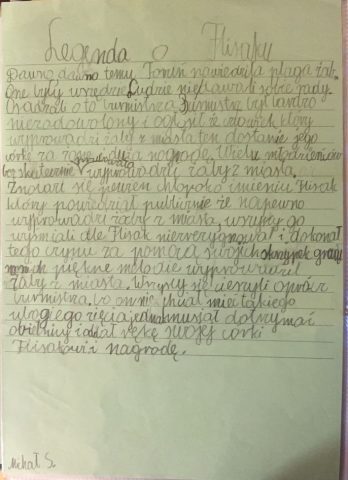 Legenda o Flisaku
Dawno dawno temu Toruń nawiedziła plaga żab.
One były wszędzie. Ludzie nie dawali sobie rady.
o to burmistrza. Burmistrz był bardzo
niezadowolony i ogłosił że człowiek który
wyprowadzi żaby z miasta ten dostanie jego
córkę za żonę dużą nagrodę. Wielu młodzieńców
bezskutecznie wyprowadzili żaby z miasta.
Znalazł się pewien chłopak o imieniu Flisak
który powiedział publicznie że napewno
wyprowadzi żaby z miasta, wszyscy go
wyśmiali ale Flisak niezrezygnował i dokonał
tego czynu za pomocą swoich skrzypek grając
na nich piękne melodie wyprowadził
żaby z miasta. Wszyscy się cieszyli oprócz
burmistrza, bo on nie chciał mieć takiego
ubogiego zięcia jednak musiał dotrzymać
obietnicy i oddał rękę swojej córki
Flisakowi i nagrodę.
Michał S.